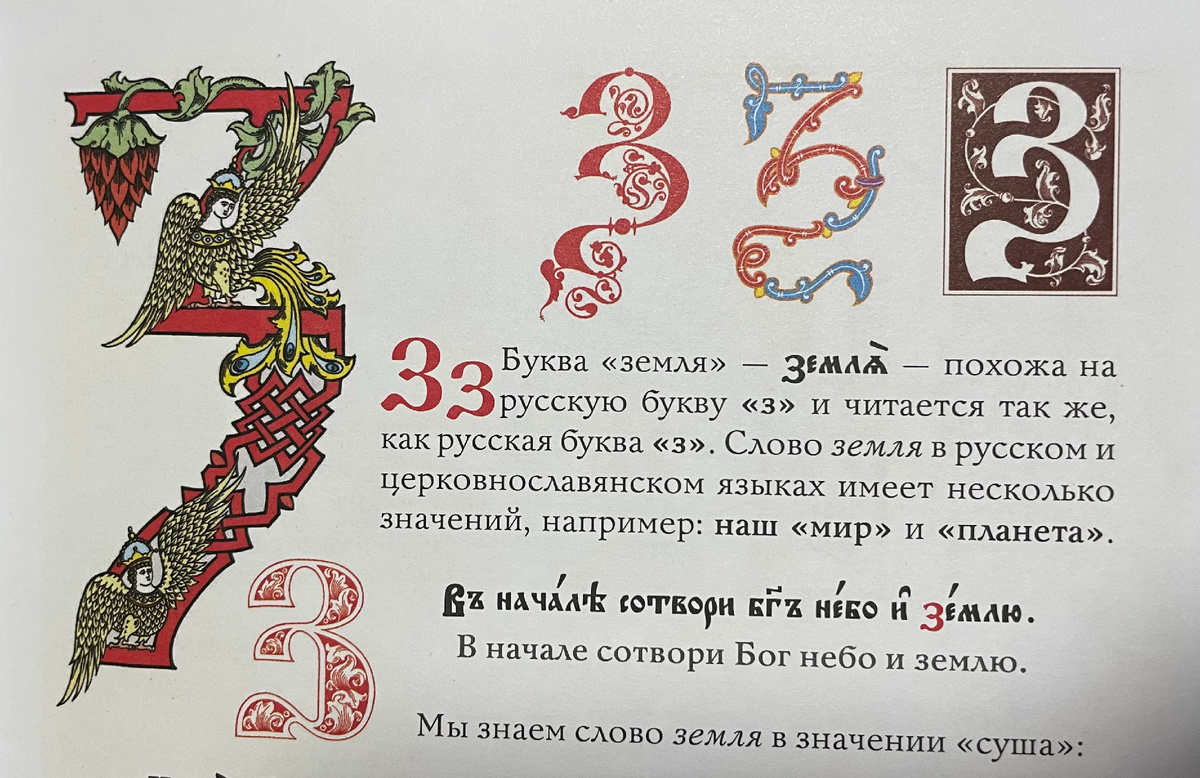 Зз Буква «земля» — землѧ̀ — похожа на
русскую букву «з» и читается так же,
как русская буква «з». Слово земля в русском и
церковнославянском языках имеет несколько
значений, например: наш «мир» и «планета».
Въ нача́лѣ сотвори бг҃ъ не́бо и҆ зе́млю.
В начале сотвори Бог небо и землю.
Мы знаем слово земля в значении «суша»: